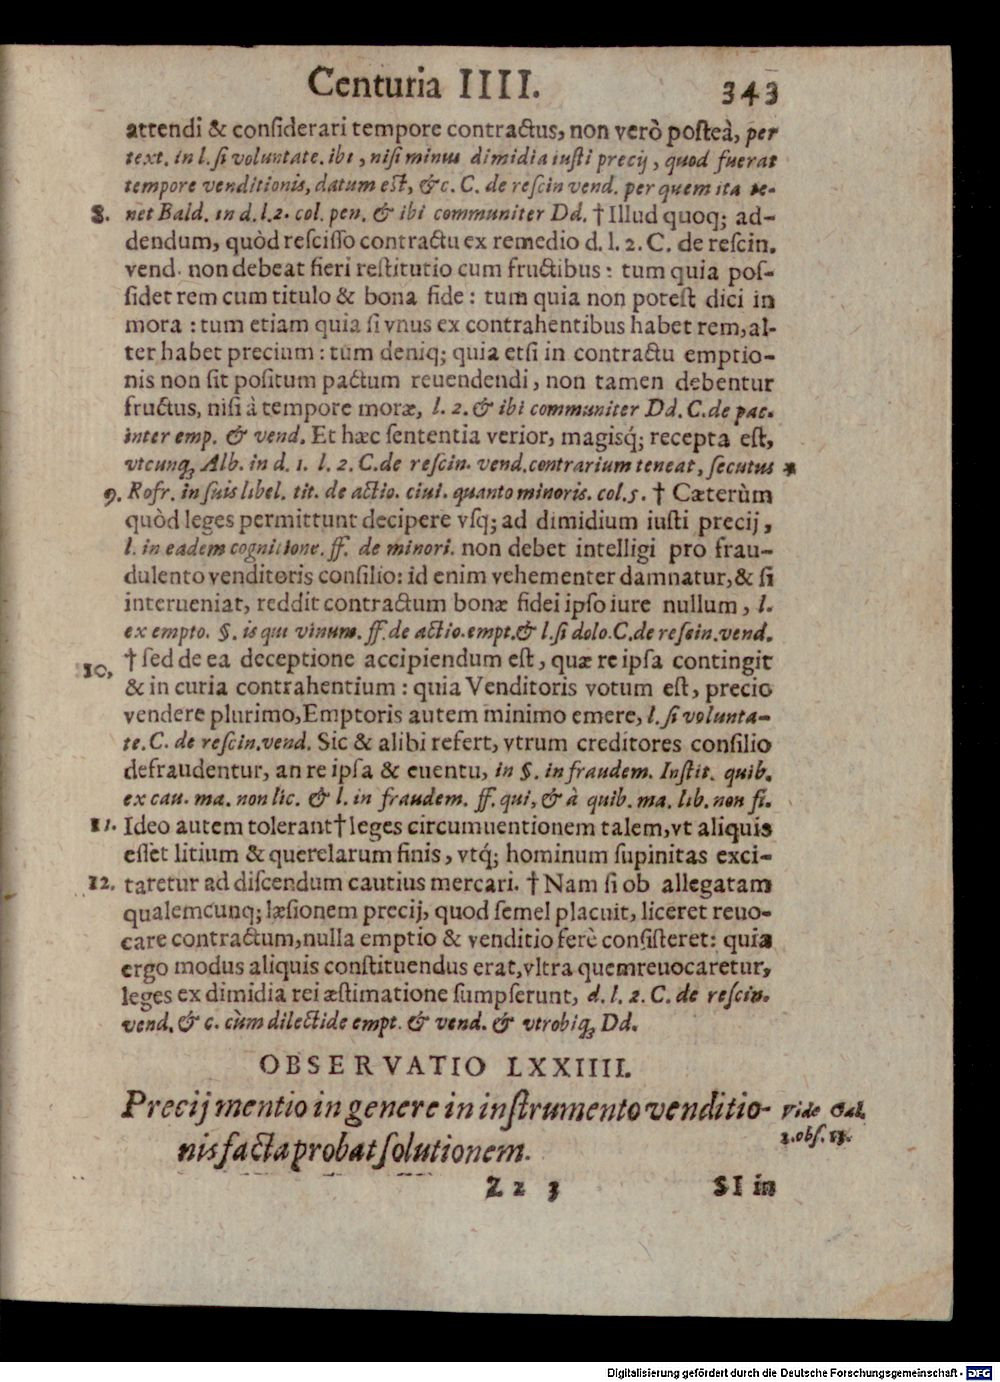 Centuria IIII. 343
attendi & considerari tempore contractus, non verò posteà, per
text. in l. si voluntate. ibi, nisi minus dimidia iusti precij, quod fuerat
tempore venditionis, datum est, &c. C. de rescin vend. per quem ita te-
8. net Bald. in d. l. 2. col. pen. & ibi communiter Dd. † Illud quoq; ad-
dendum, quòd rescisso contractu ex remedio d. l. 2. C. de rescin.
vend. non debeat fieri restitutio cum fructibus: tum quia pos-
sidet rem cum titulo & bona fide: tum quia non potest dici in
mora: tum etiam quia si vnus ex contrahentibus habet rem, al-
ter habet precium: tum deniq; quia etsi in contractu emptio-
nis non sit positum pactum reuendendi, non tamen debentur
fructus, nisi à tempore moræ, l. 2. & ibi communiter Dd. C. de pac.
inter emp. & vend. Et hæc sententia verior, magisq́; recepta est,
vtcunq; Alb. in d. 1. l. 2. C. de rescin. vend. contrarium teneat, secutus *
9. Rofr. in suis libel. tit. de actio. ciui. quanto minoris. col. 5. † Cæterùm
quòd leges permittunt decipere vsq; ad dimidium iusti precij,
l. in eadem cognitione. ff. de minori. non debet intelligi pro frau-
dulento venditoris consilio: id enim vehementer damnatur, & si
interueniat, reddit contractum bonæ fidei ipso iure nullum, l.
ex empto. §. is qui vinum. ff. de actio. empt. & l. si dolo. C. de rescin. vend.
10. † sed de ea deceptione accipiendum est, quæ re ipsa contingit
& in curia contrahentium: quia Venditoris votum est, precio
vendere plurimo, Emptoris autem minimo emere, l. si volunta-
te. C. de rescin. vend. Sic & alibi refert, vtrum creditores consilio
defraudentur, an re ipsa & euentu, in §. in fraudem. Instit. quib.
ex cau. ma. non lic. & l. in fraudem. ff. qui, & à quib. ma. lib. non fi.
11. Ideo autem tolerant † leges circumuentionem talem, vt aliquis
esset litium & querelarum finis, vtq́; hominum supinitas exci-
12. taretur ad discendum cautius mercari. † Nam si ob allegatam
qualemcunq; læsionem precij, quod semel placuit, liceret reuo-
care contractum, nulla emptio & venditio ferè consisteret: quia
ergo modus aliquis constituendus erat, vltra quem reuocaretur,
leges ex dimidia rei æstimatione sumpserunt, d. l. 2. C. de rescin.
vend. & c. cùm dilecti de empt. & vend. & vtrobiq; Dd.
OBSERVATIO LXXIIII.
Precij mentio in genere in instrumento venditio-
nis facta probat solutionem.
Vide Gal.
2. obs.
Zz 3 SI in
Digitalisierung gefördert durch die Deutsche Forschungsgemeinschaft - DFG